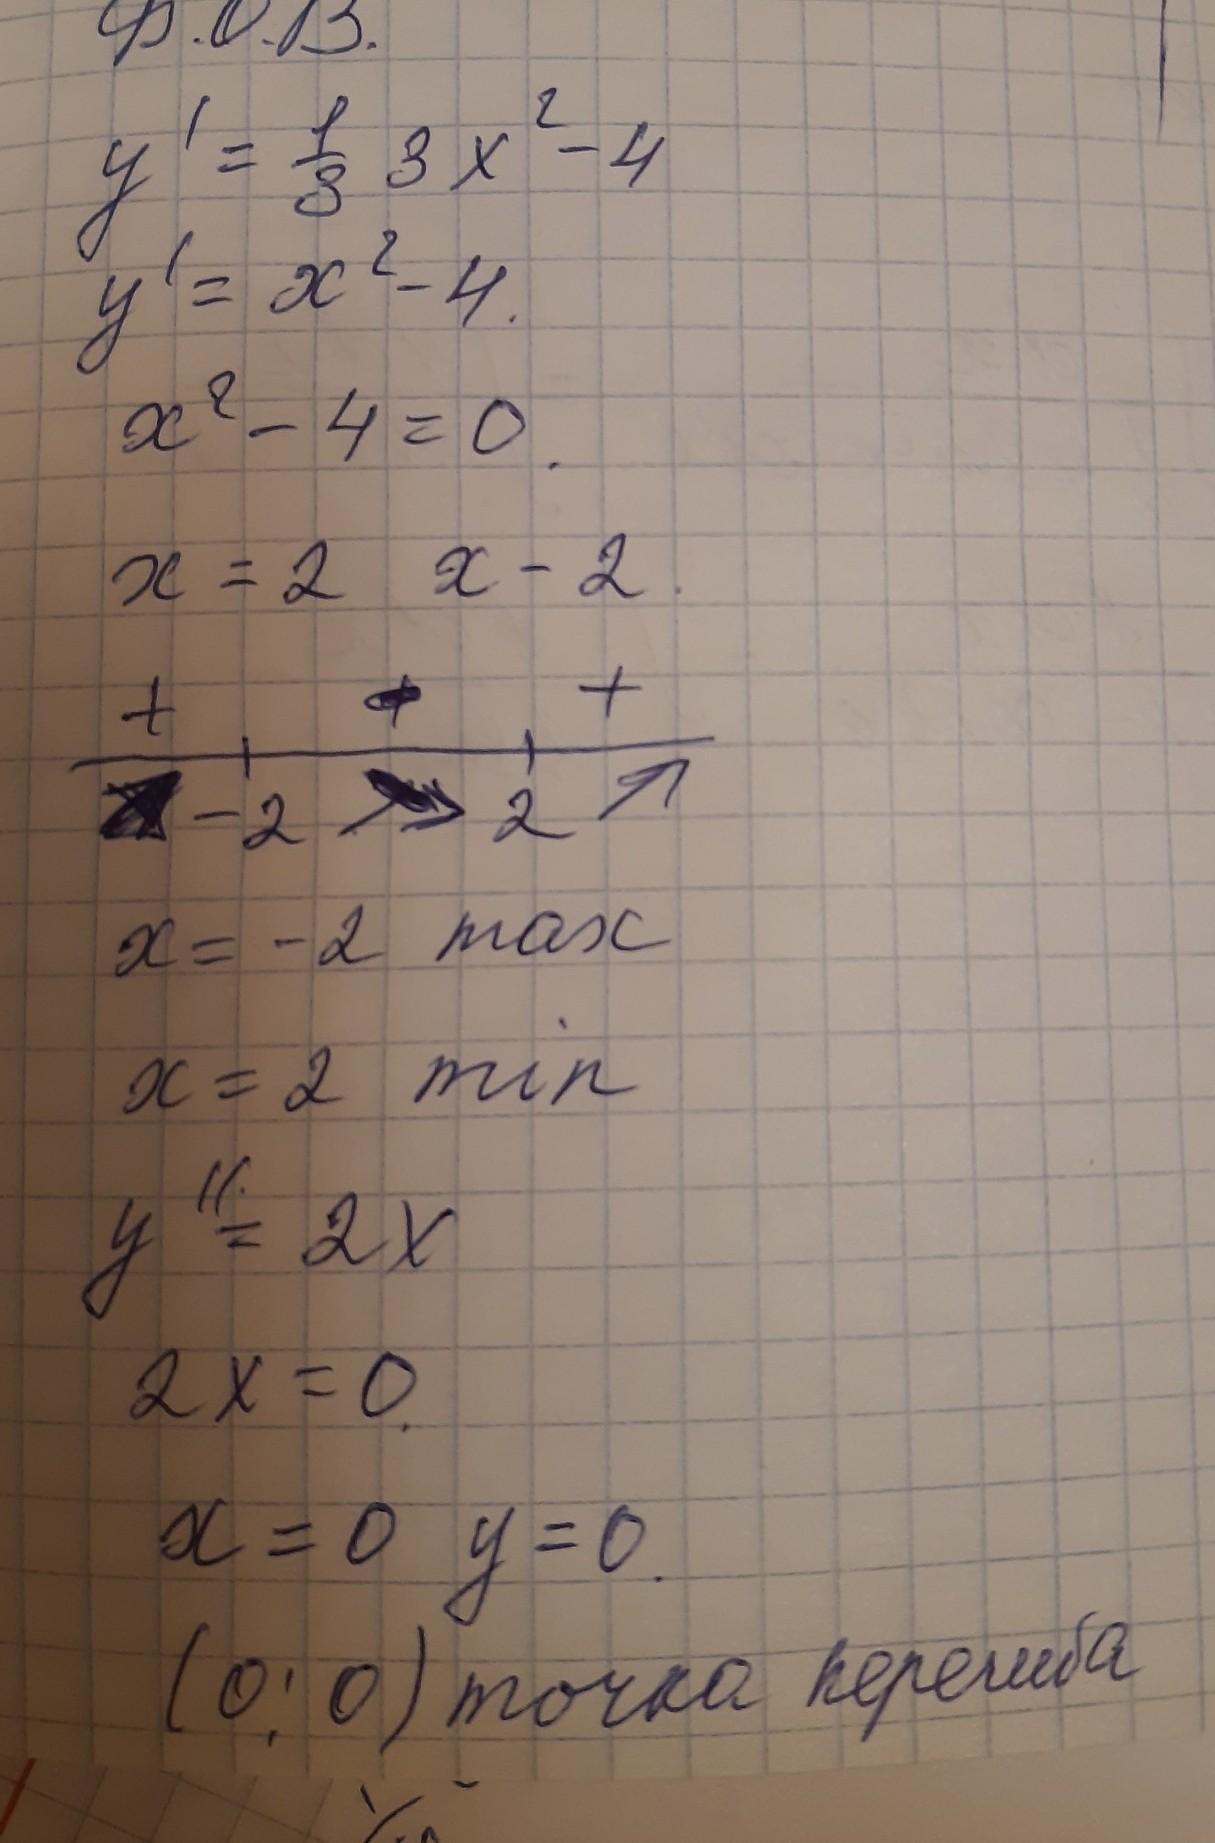 Ф.О.В.
y' = 1/3 3x² - 4
y' = x² - 4.
x² - 4 = 0.
x = 2 x - 2.
+ +
-2 2
x = -2 max
x = 2 min
y'' = 2x
2x = 0.
x = 0 y = 0.
(0; 0) точка перегиба